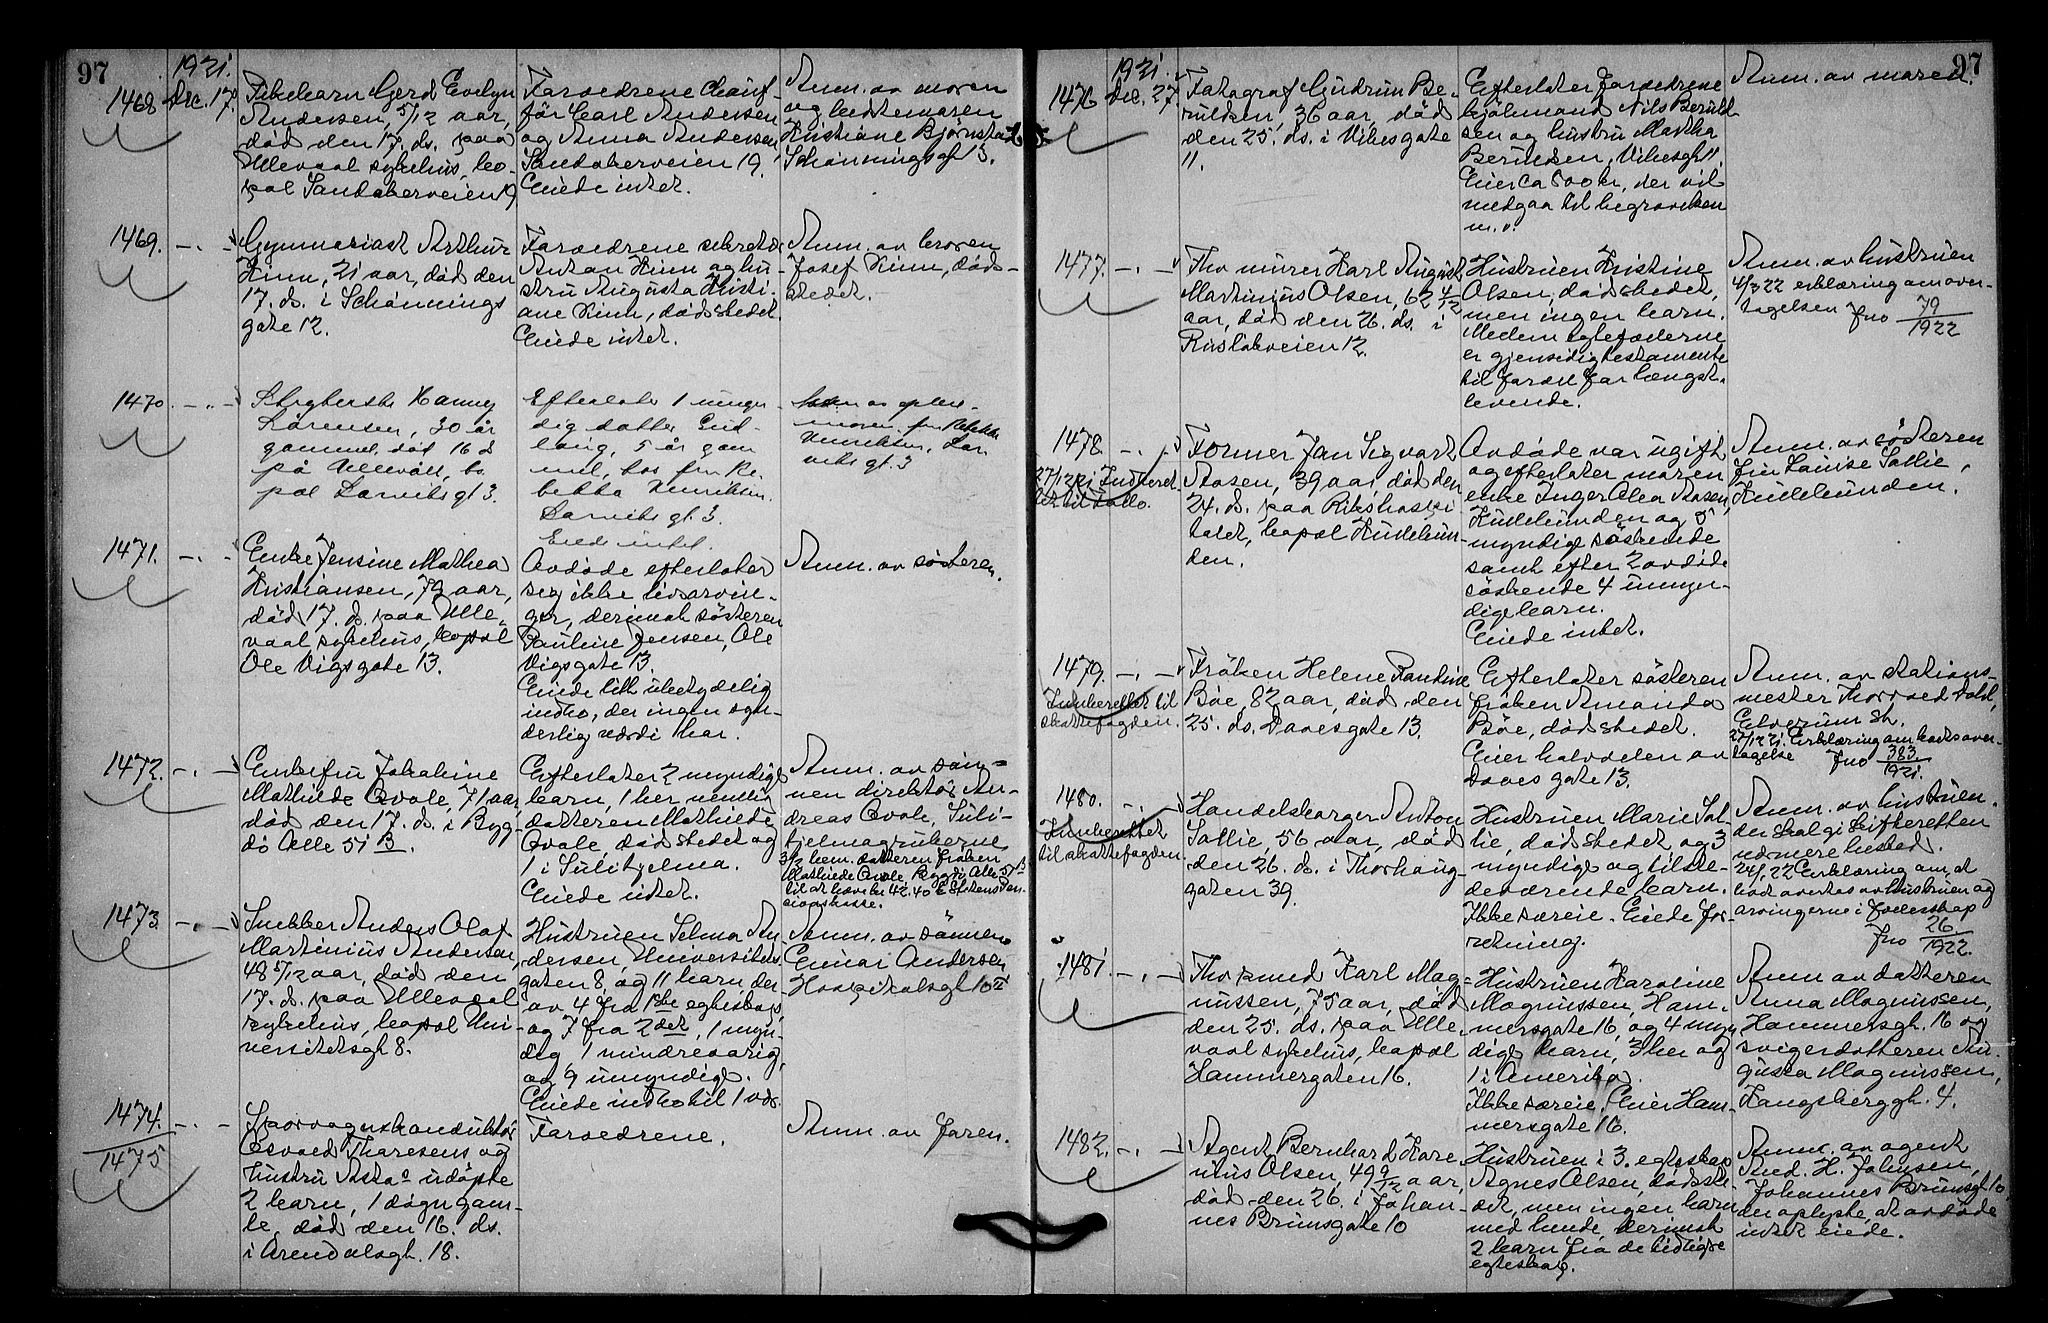 97
1921.
1468
Dec. 17.
Pikebarn Gerd Evelyn
Andersen, 5/12 aar,
død den 17. ds. paa
Ullevaal sykehus, bo-
pæl Sandakerveien 19
Forældrene Chauf-
før Carl Andersen
og Anna Andersen
Sandakerveien 19.
Eiede intet.
Anm. av moren
og bestemoren
Kristiane Bjørnstad
Schønningsgt 13.
1469. -.-
Gymnasiast Arthur
Kinn, 21 aar, død den
17. ds. i Schønnings
gate 12.
Forældrene sekretær
Anton Kinn og hu-
stru Augusta Kristi-
ane Kinn, dødsstedet.
Eiede intet.
Anm. av broren
Josef Kinn, døds-
stedet.
1470. -.-
Strykerske Hanny
Sørensen, 30 år
gammel, død 16 ds
på Ullevål, bo-
pæl Larviksgt 3.
Efterlater 1 umyn-
dig datter
5 år gam
mel, hos fru Re-
bekka Henriksen.
Larviksgt. 3.
Eiede intet.
Anm av pleie-
moren fru Rebekka
Henriksen, Lar
viksgt. 3
1471. -.-
Enke Jensine Mathea
Kristiansen, 72 aar,
død 17. ds. paa Ulle-
vaal sykehus, bopæl
Ole Vigsgate 13.
Avdøde efterlater
sig ikke livsarvin-
ger, derimot søsteren
Pauline Jensen, Ole
Vigsgate 13.
Eiede litt ubetydelig
indbo, der ingen syn-
derlig værdi har.
Anm. av søsteren.
1472. -.-
Enkefru Johanne
Mathilde Qvale, 71 aar,
død den 17. ds. i Byg-
dø Alle 51 B.
Efterlater 2 myndige
barn, 1 her nemlig
datteren Mathilde
Qvale, dødsstedet og
1 i Sulitjelma.
Eiede intet.
Anm. av søn-
nen direktør An-
dreas Qvale, Suli-
tjelmagruberne
3/2 bem. datteren frøken
Mathilde Qvale, Bygdø Alle 51 B
til at hæve kr 42.40 i Statens Pen-
sionskasse.
1473. -.-
Snekker Anders Olaf
Martinius Andersen,
48 5/12 aar, død den
17. ds. paa Ullevaal
sykehus, bopæl Uni-
versitetsgt 8.
Hustruen Selma An-
dersen, Universitets
gaten 8, og 11 barn, der-
av 4 fra 1ste egteskap,
og 7 fra 2det, 1 myn-
dig 1 mindreaarig,
og 9 umyndige.
Eiede indbo til 1 vær.
Anm. av sønnen
Einar Andersen
Hospitalsgt 10 II
1474. -.-
1475
Sporvognskonduktør
Osvald Thoresens og
hustru Astas udøpte
2 barn, 1 døgn gam-
le, død den 16. ds.
i Arendalsgt. 18.
Forældrene.
Anm. av faren.
97
1921.
1476
Dec. 27.
Fotograf Gudrun Be-
rulsen, 36 aar, død
den 25. ds. i Vibesgate
11.
Efterlater forældrene
kjøbmand Nils Beruld-
sen og hustru Martha
Berulsen, Vibesgt 11.
Eier ca 500 kr, der vil
medgaa til begravelsen
m.v.
Anm. av moren.
1477. -.-
Fhv murer Karl August
Martinius Olsen, 62 4/12
aar, død den 26. ds. i
Ruseløkveien 12.
Hustruen Kristine
Olsen, dødsstedet,
men ingen barn.
Mellem egtefællerne
er gjensidig testamente
til fordel for længst-
levende.
Anm. av hustruen
4/3 22 erklæring om over-
tagelsen Jno 79/1922
1478. -.-
27/12 21 Indberet-
tet til Follo.
Former Jan Sigvart
Aasen, 39 aar, død den
24. ds. paa Rikshospi
talet, bopæl Kullebun-
den.
Avdøde var ugift
og efterlater moren
enke Inger Olea Aasen,
Kullebunden og 5
myndige søskende
samt efter 2 avdøde
søskende 4 umyn-
dige barn.
Eiede intet.
Anm. av søsteren
fru Louise Sollie,
Kullebunden.
1479. -.-
Innberettet til
skattefogden.
Frøken Helene Randine
Bøe, 82 aar, død den
25. ds. Dovesgate 13.
Efterlater søsteren
frøken Amanda
Bøe, dødsstedet.
Eier halvdelen av
Dovesgate 13.
Anm. av stations-
mester Thorvald Dahl,
Elverum st.
27/12 21. Erklæring om boets over-
tagelse Jno 383/1921.
1480. -.-
Innberettet
til skattefogden
Handelsborger Anton
Sollie, 56 aar, død
den 26. ds. i Thorhaug-
gaten 39.
Hustruen Marie Sol-
lie, dødsstedet og 3
myndige og tilste-
deværende barn.
Ikke særeie. Eiede for-
retning.
Anm. av hustruen.
der skal gi skifteretten
nærmere besked.
24/1 22 Erklæring om, at
boet overtas av hustruen og
arvingerne i fællesskap
Jno 26/1922.
1481. -.-
Fhv Karl Mag-
nussen, 75 aar, død
den 25. ds. paa Ulle-
vaal sykehus, bopæl
Hammergaten 16.
Hustruen Karoline
Magnussen, Ham-
mersgate 16, og 4 myn
dige barn, 3 her og
1 i Amerika.
Ikke særeie. Eier Ham-
mersgate 16.
Anm av datteren
Anna Magnussen,
Hammersgt. 16 og
svigerdatteren Au-
gusta Magnussen,
Kongsberggt. 4.
1482. -.-
Agent Bernhard Kare
nius Olsen, 49 9/12 aar,
død den 26. i Johan-
nes Brunsgate 10
Hustruen i 3. egteskap
Agnes Olsen, dødsste-
det, men ingen barn
med hende, derimot
2 barn fra de tidligere
egteskap.
Anm. av agent
And. H. Johnsen,
Johannes Brunsgt 10
der oplyste, at avdøde
intet eiede.